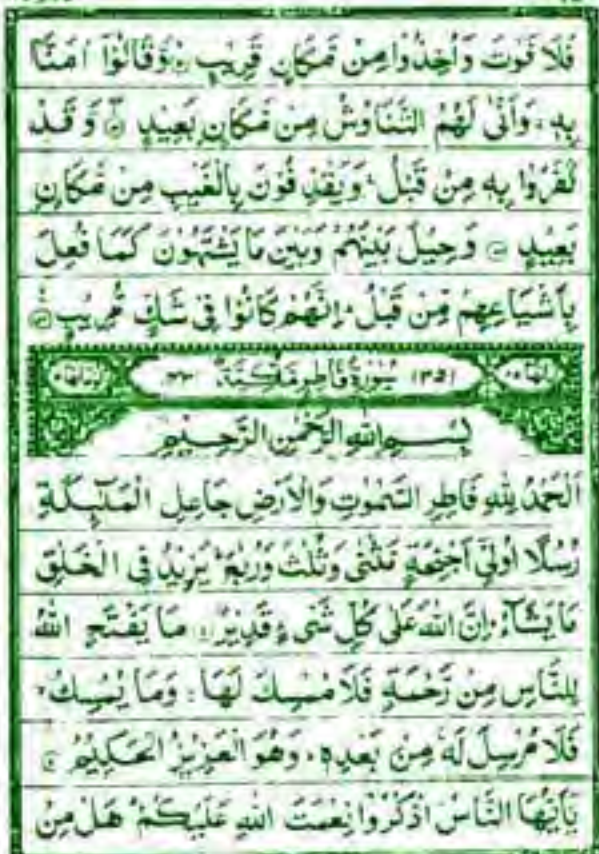 فَلَا فَوْتَ وَأُخِذُوا مِنْ مَّكَانٍ قَرِيْبٍ ۙ وَّقَالُوْٓا اٰمَنَّا
بِهٖ ۚ وَاَنّٰى لَهُمُ التَّنَاوُشُ مِنْ مَّكَانٍۭ بَعِيْدٍ ۚ وَّقَدْ
كَفَرُوْا بِهٖ مِنْ قَبْلُ ۚ وَيَقْذِفُوْنَ بِالْغَيْبِ مِنْ مَّكَانٍۭ
بَعِيْدٍ وَحِيْلَ بَيْنَهُمْ وَبَيْنَ مَا يَشْتَهُوْنَ كَمَا فُعِلَ
بِاَشْيَاعِهِمْ مِّنْ قَبْلُ ۭ اِنَّهُمْ كَانُوْا فِيْ شَكٍّ مُّرِيْبٍ
(٣٥) سُوْرَةُ فَاطِرٍ مَكِّيَّةٌ
بِسْمِ اللهِ الرَّحْمٰنِ الرَّحِيْمِ
اَلْحَمْدُ لِلّٰهِ فَاطِرِ السَّمٰوٰتِ وَالْاَرْضِ جَاعِلِ الْمَلٰٓئِكَةِ
رُسُلًا اُولِيْٓ اَجْنِحَةٍ مَّثْنٰى وَثُلٰثَ وَرُبٰعَ ۭ يَزِيْدُ فِي الْخَلْقِ
مَا يَشَآءُ ۭ اِنَّ اللهَ عَلٰى كُلِّ شَيْءٍ قَدِيْرٌ مَا يَفْتَحِ اللهُ
لِلنَّاسِ مِنْ رَّحْمَةٍ فَلَا مُمْسِكَ لَهَا ۚ وَمَا يُمْسِكْ ۙ
فَلَا مُرْسِلَ لَهٗ مِنْۢ بَعْدِهٖ ۭ وَهُوَ الْعَزِيْزُ الْحَكِيْمُ
يٰٓاَيُّهَا النَّاسُ اذْكُرُوْا نِعْمَتَ اللهِ عَلَيْكُمْ ۭ هَلْ مِنْ